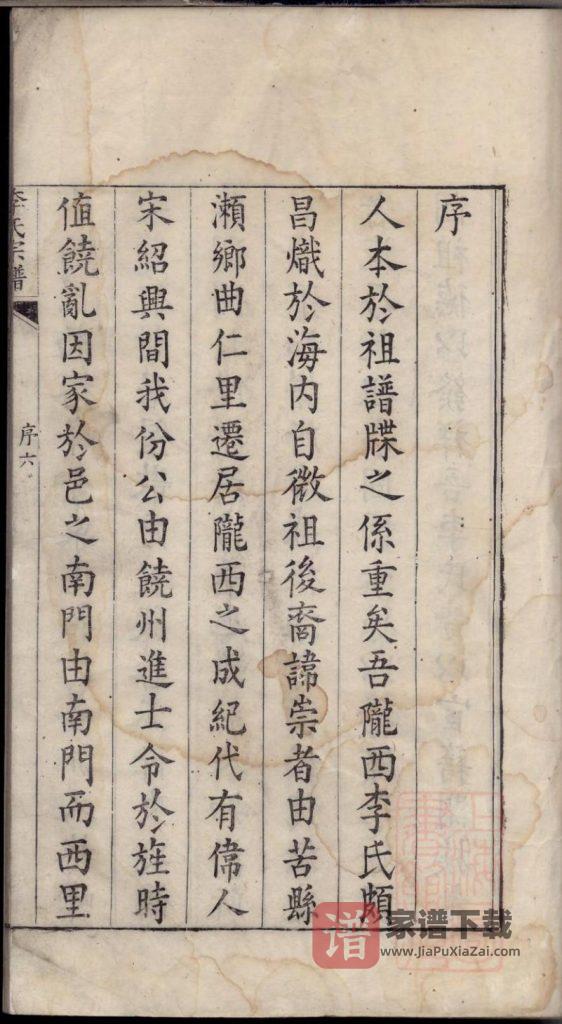 序
人本於祖譜牒之係重矣吾隴西李氏頗
昌熾於海内自徵祖後裔諱崇者由苦縣
瀨鄉曲仁里遷居隴西之成紀代有偉人
宋紹興間我份公由饒州進士令於旌時
值饒亂因家於邑之南門由南門而西里
李氏宗譜
序六
谱
家谱下载
www.JiaPuXiaZai.com